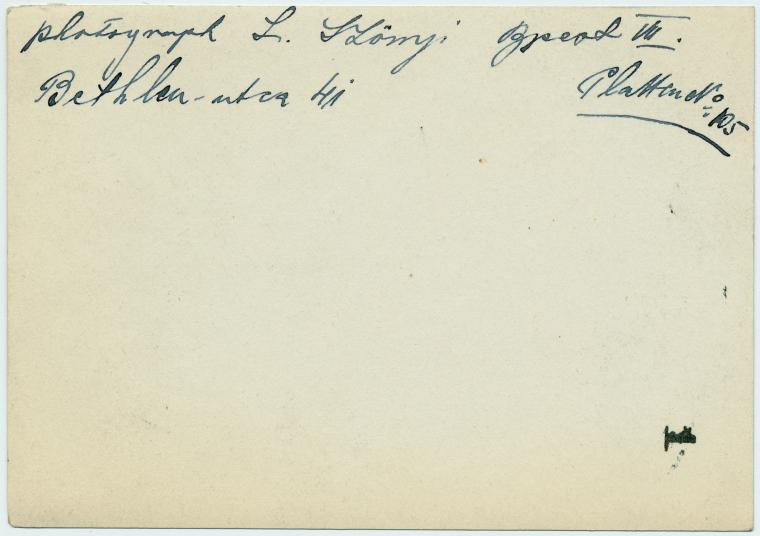 photograph L. Szönyi Bpest III.
Bethlen-utca 41
Platten No 105